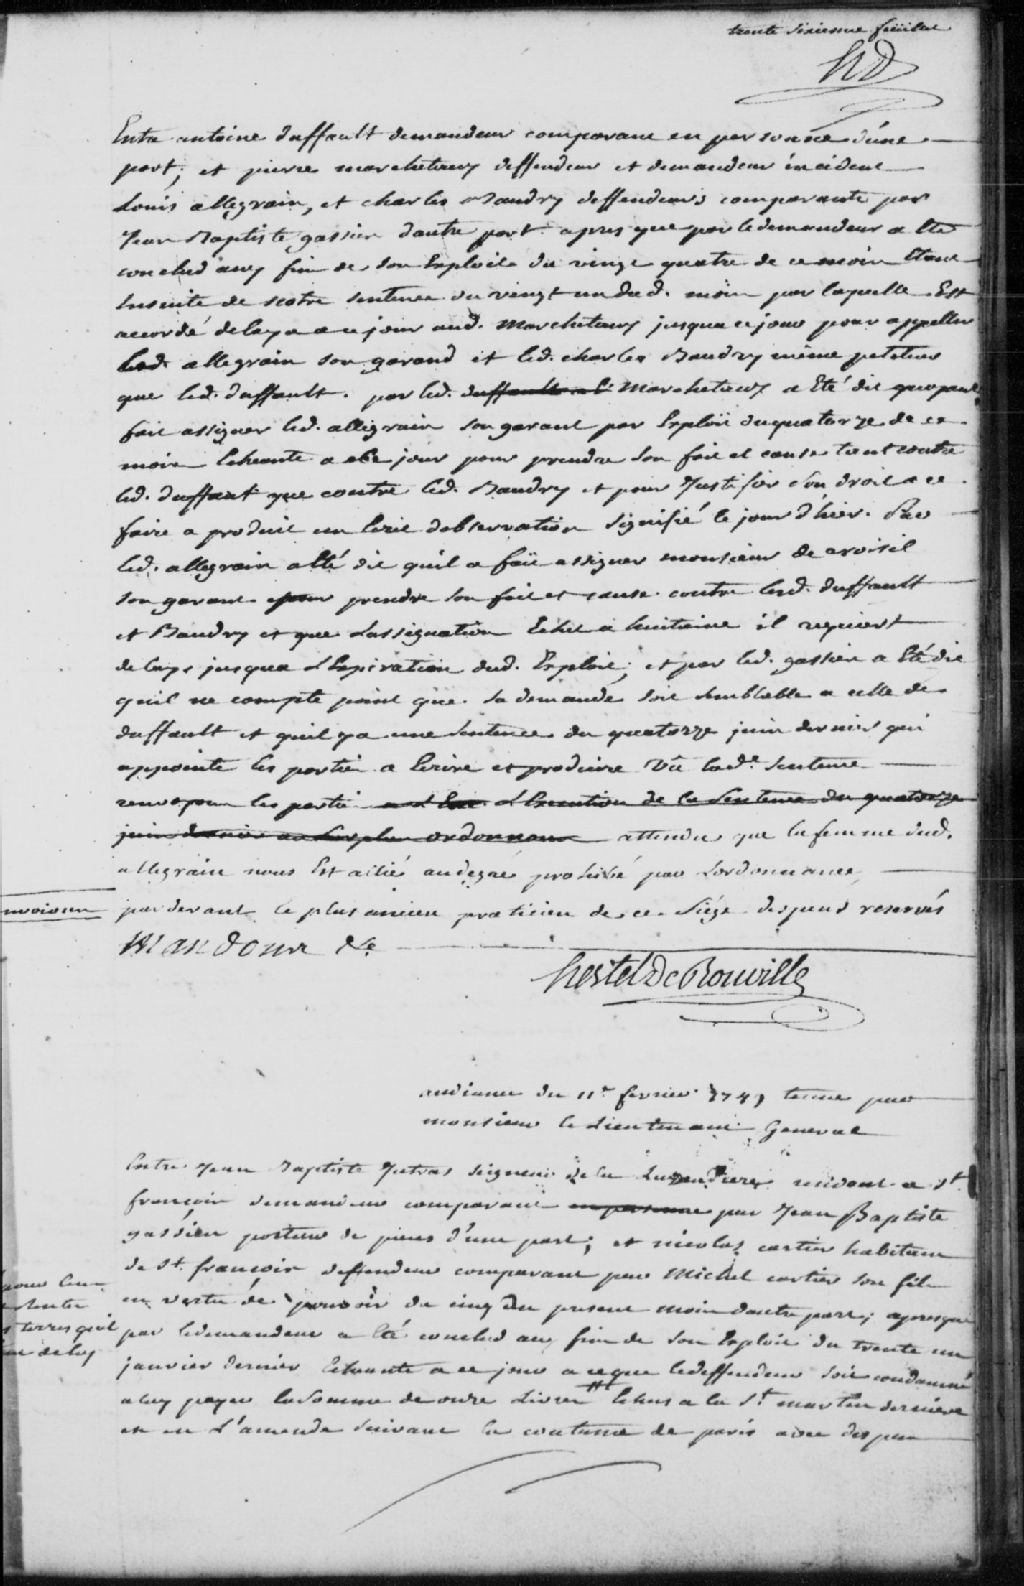 trente sixiesme feüillet
HD
Entre antoine duffault demandeur comparant en personne d'une
part, et pierre marcheteaux deffendeur et demandeur incident
Louis allegrain, et charles Baudry deffendeurs comparants par
Jean Baptiste gassien d'autre part. apres que par le demandeur a Eté
conclud aux fins de son Exploit du vingt quatre de ce mois Etant
ensuite de notre sentence du vingt un dud. mois par laquelle Est
accordé delay a ce jour aud. Marcheteaux jusqua ce jour pour appeller
led. allegrain son garand et led. charles Baudry même
que led. duffault. par led. duffault a E Marcheteaux a Eté dit quayant
fait assigner led. allegrain son garant par Exploit du quatorze de ce
mois Echeante a ce jour pour prendre son fait et cause tant contre
led. duffaut que contre led. Baudry et pour Justifier son droit a ce
faire a produit un Ecrit d'observation signifié le jour d'hier. Par
led. allegrain a Eté dit qu'il a fait assigner monsieur de croisil
son garant pour prendre son fait et cause contre lesd. duffault
et Baudry et que l'assignation Echet a huitaine il requiert
delays jusqua l'Expiration dud. Exploit; et par led. gassien a Eté dit
qu'il ne compte point que sa demande soit semblable a celle de
duffault et qu'il y a une sentence du quatorze juin dernier qui
appointe les parties a Ecrire et produire Vû lad.e sentence
renvoyons les partis a l'Exe l'Execution de la sentence du quatorze
juin dernier au surplus ordonnons attendu que la femme dud.
allegrain nous Est alié au degré prohibé par L'ordonnance,
renvoions
pardevant le plus ancien praticien de ce siége depens reservés
Mandons &c.
hertel De Rouville
audiance du 11e fevrier 1749 tenue par
monsieur le Lieutenant General
Entre Jean Baptiste Jutras seigneur de la Lussaudiere residant a St.
françois demandeur comparant en personne par Jean Baptiste
gassien porteur de pieces d'une part; et nicolas cartier habitant
de St. françois deffendeur comparant par Michel cartier son fils
en vertu de pouvoir du cinq du present mois d'autre part; apres que
par le demandeur a Eté conclud aux fins de son Exploit du trente un
janvier dernier Echeante a ce jour a ce que le deffendeur soit condamné
a luy payer la somme de onze Livres # Echus a la St. martin derniere
et en L'amende suivant la coutume de paris avec depens
# pour cens
et rentes
terres qu'il
tient de luy